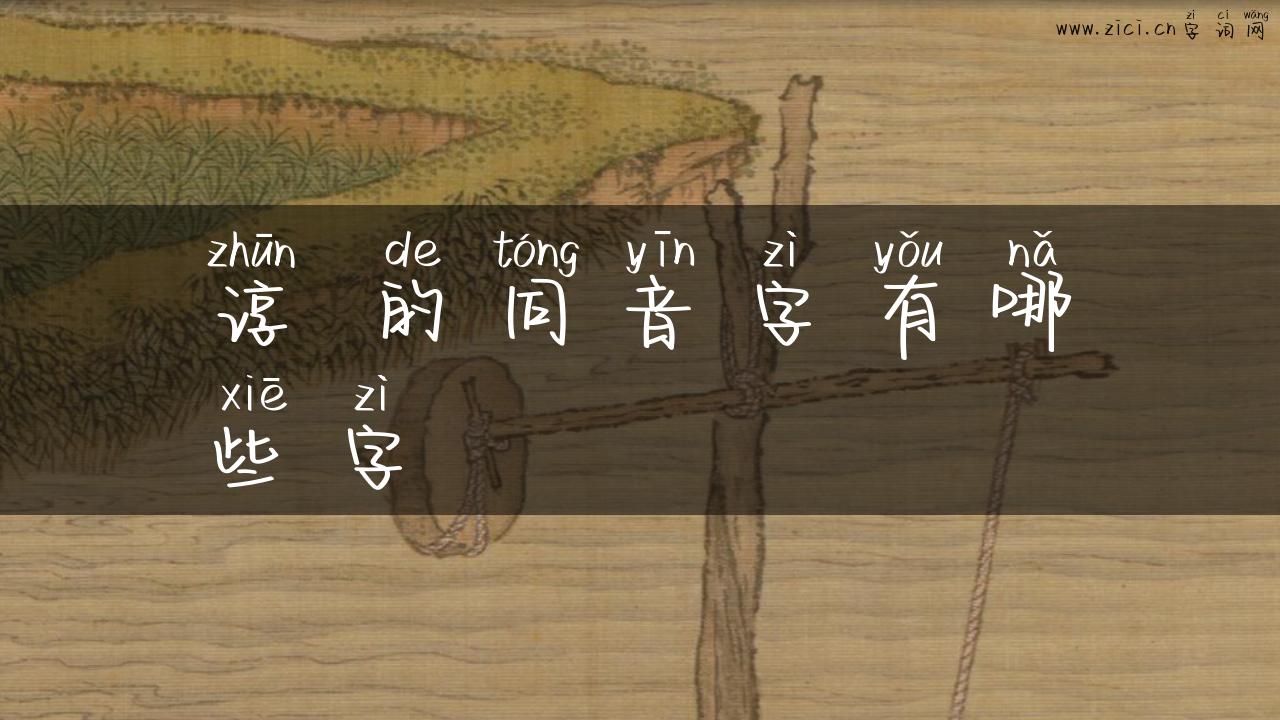 zì cí wǎng
www.zici.cn 字词网
zhūn de tóng yīn zì yǒu nǎ
谆的同音字有哪
xiē zì
些字